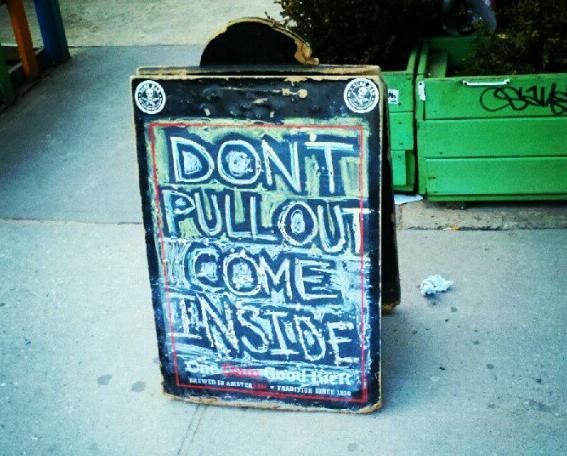 DON'T
PULL OUT
COME
INSIDE
One Damn Good Beer
BREWED IN AMSTERDAM TRADITION SINCE